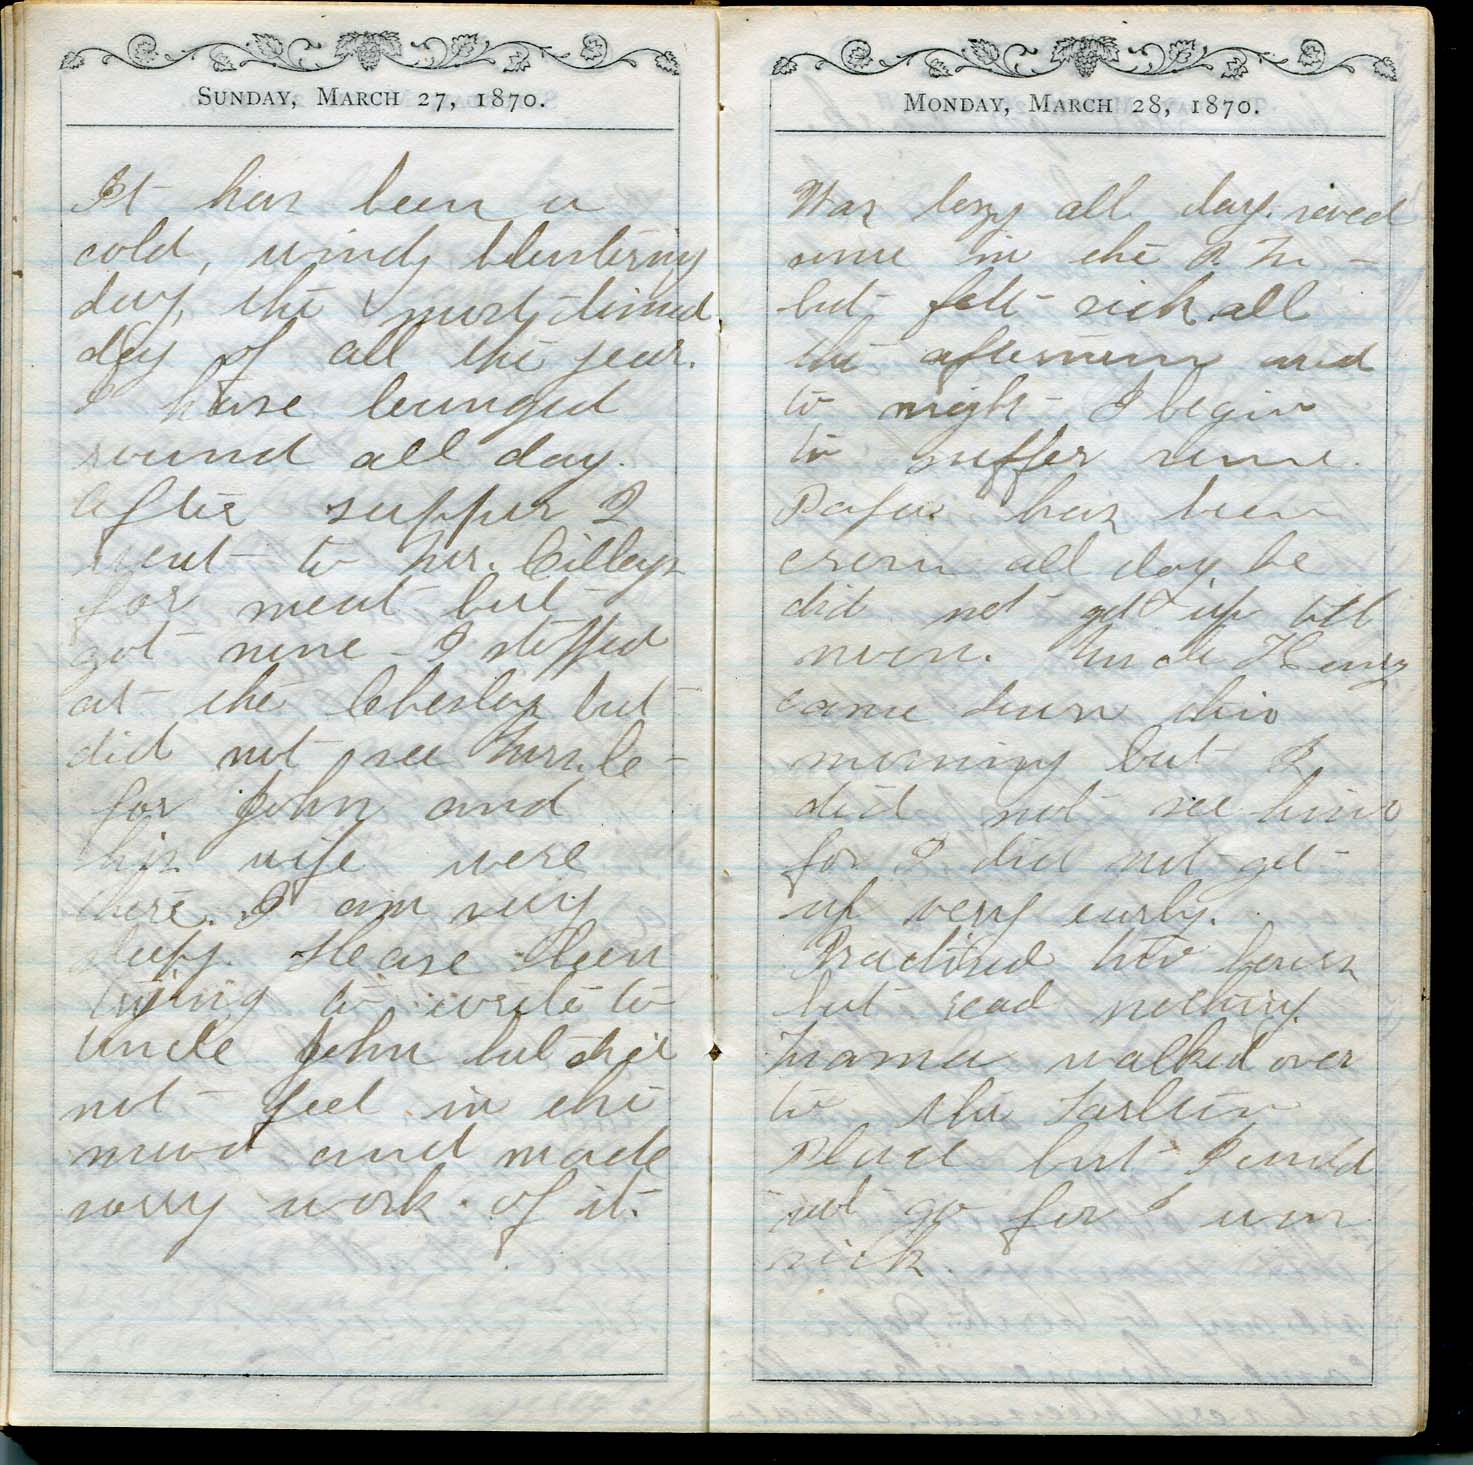 SUNDAY, MARCH 27, 1870.
It has been a
cold, windy blustering
day, the most dismal
day of all the year.
I have lounged
round all day.
After supper I
went to Mr. Cilleys
for meat but
got none - I stopped
at the Chesleys but
did not see Mrs. C -
for John and
his wife were
there. I am very
sleepy. Have been
trying to write to
Uncle John but did
not feel in the
mood and made
sorry work of it.
MONDAY, MARCH 28, 1870.
Was lazy all day. sewed
some in the A. M -
but felt sick all
the afternoon and
to night - I begin
to suffer some.
Papa has been
cross all day he
did not get up till
noon. Uncle Henry
came down this
morning but I
did not see him
for I did not get
up very early.
Practised two hours
but read nothing.
Mama walked over
to the Tarlton
place but I could
not go for I was
sick.